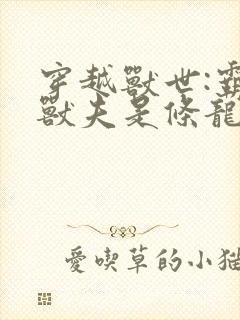 穿越獸世:
獸夫是條龍
愛喫草的小